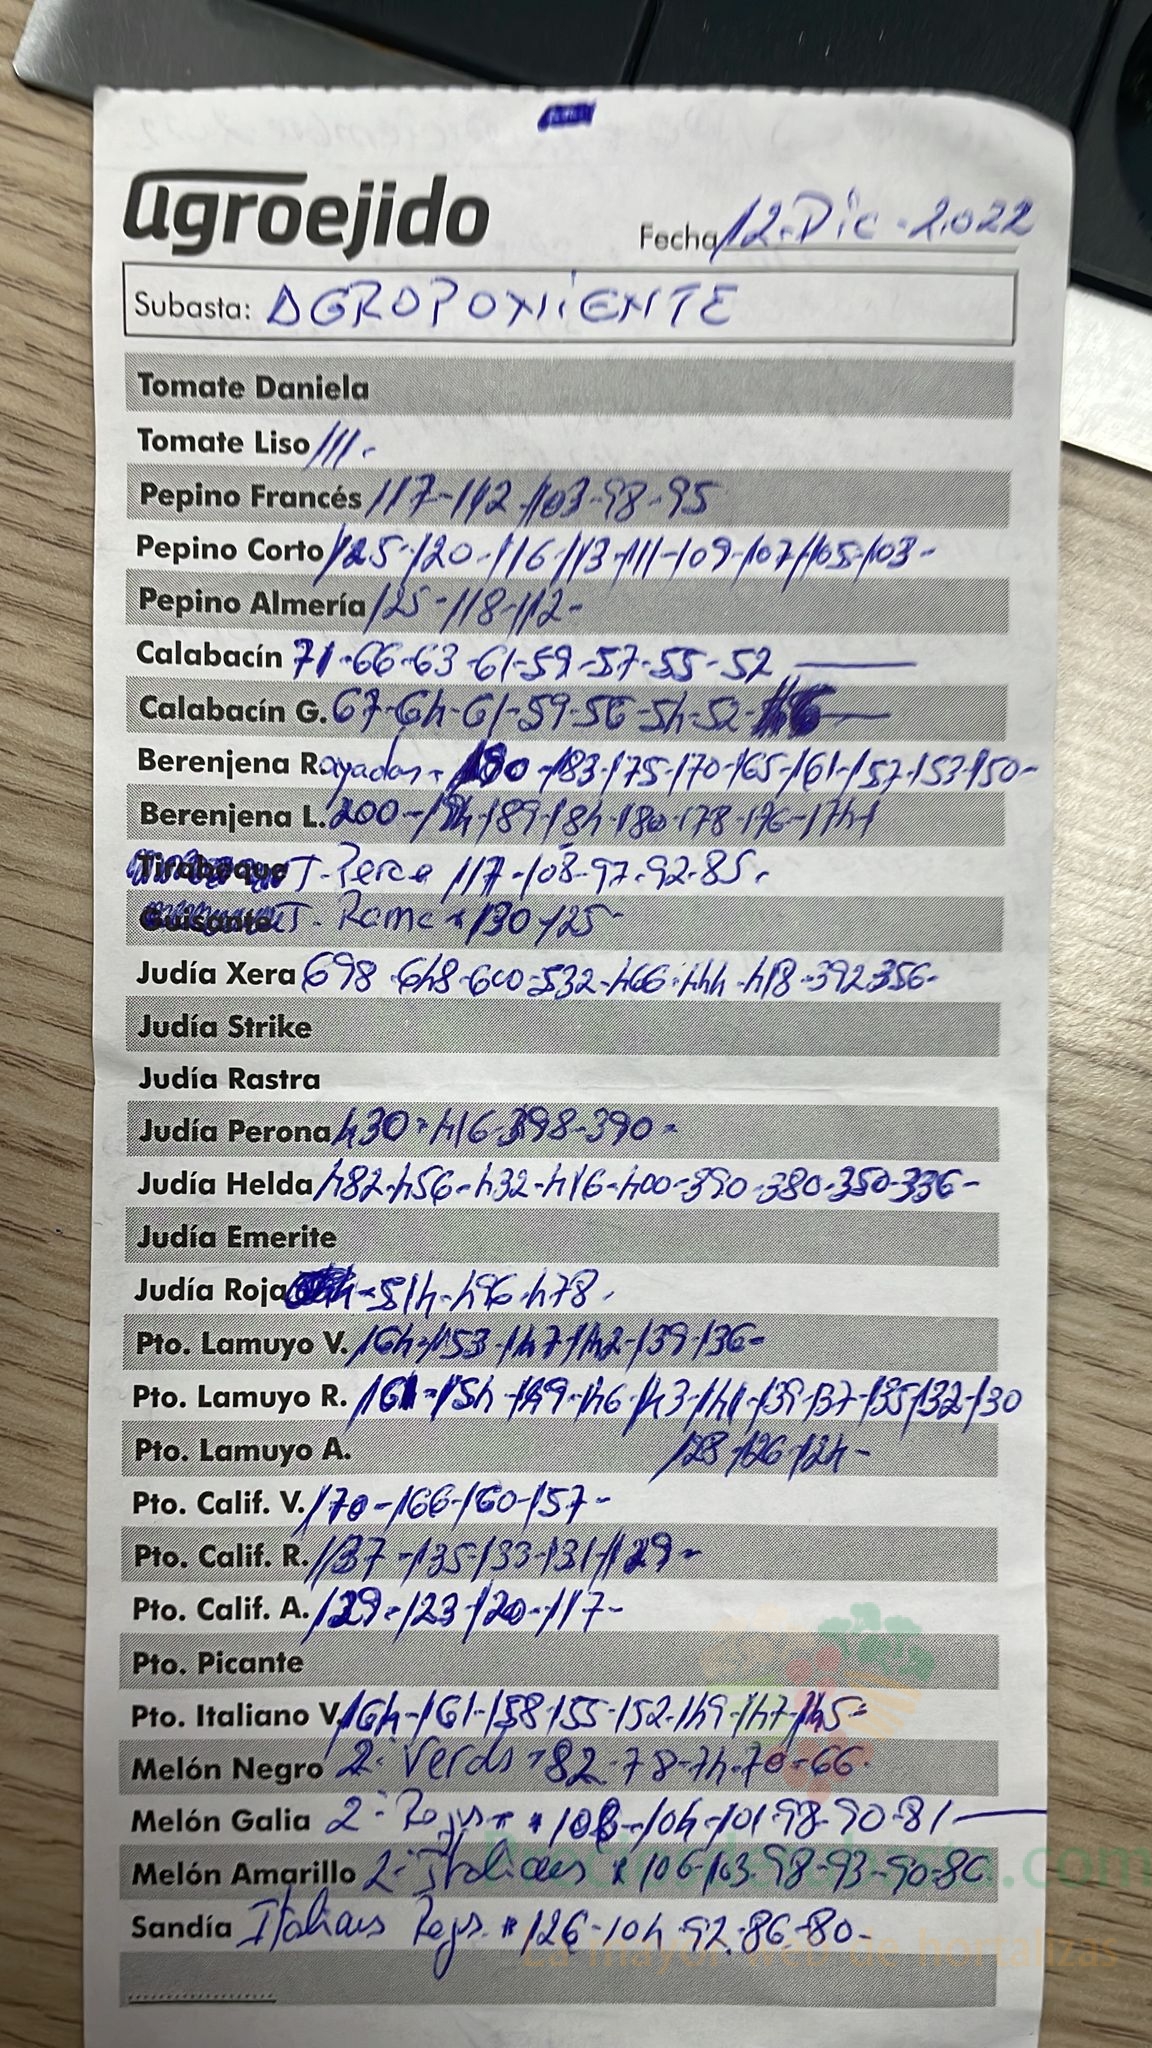 agroejido
Fecha 12-Dic-2.022
Subasta: AGROPONIENTE
Tomate Daniela
Tomate Liso 111-
Pepino Francés 117-112-103-98-95
Pepino Corto 125-120-116-113-111-109-107-105-103-
Pepino Almería 125-118-112-
Calabacín 71-66-63-61-59-57-55-52
Calabacín G. 67-64-61-59-56-54-52-
Berenjena Rayadas - 190-183-175-170-165-161-157-153-150-
Berenjena L. 200-194-189-184-180-178-176-174-
Tirabeque T. Pera 117-108-97-92-85-
Guisante T. Rama 130-125-
Judía Xera 698-648-600-532-466-444-418-392-356-
Judía Strike
Judía Rastra
Judía Perona 430-416-398-390-
Judía Helda 482-456-432-416-400-390-380-350-336-
Judía Emerite
Judía Roja 514-496-478-
Pto. Lamuyo V. 164-153-147-142-139-136-
Pto. Lamuyo R. 161-154-149-146-143-141-139-137-135-132-130
Pto. Lamuyo A. 128-126-124-
Pto. Calif. V. 170-166-160-157-
Pto. Calif. R. 137-135-133-131-129-
Pto. Calif. A. 129-123-120-117-
Pto. Picante
Pto. Italiano V. 164-161-158-155-152-149-147-145-
Melón Negro 2ª Verds 82-78-74-70-66-
Melón Galia 2ª Rojs 108-104-101-98-90-81
Melón Amarillo 2ª Italians 106-103-98-93-90-80
Sandía Italians Rojs 126-104-92-86-80-
.com
La mayor web de hortalizas